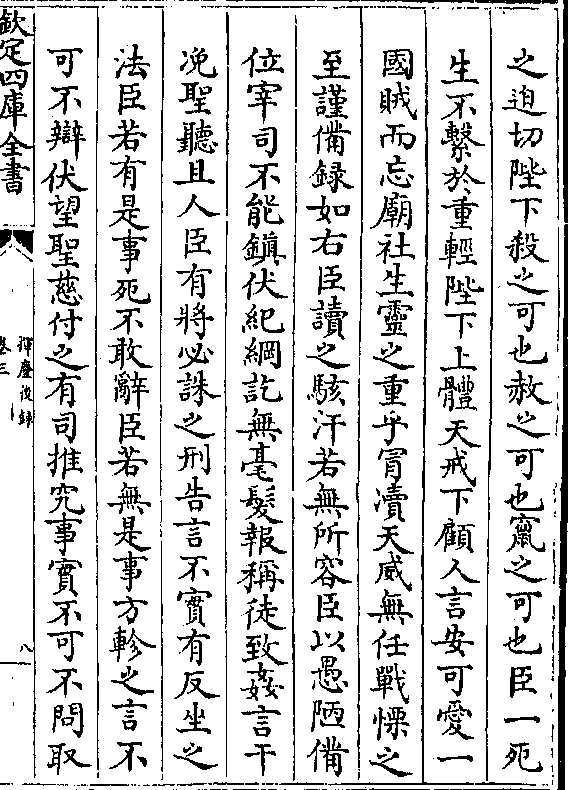 之迫切陛下殺之可也赦之可也竄之可也臣一死
生不繫於重輕陛下上體天戒下顧人言安可愛一
國賊而忘廟社生靈之重乎冐瀆天威無任戰慄之
至謹備録如右臣讀之駭汗若無所容臣以愚陋備
位宰司不能鎭伏紀綱訖無毫髮報稱徒致姦言干
冼聖聽且人臣有將必誅之刑告言不實有反坐之
法臣若有是事死不敢辭臣若無是事方軫之言不
可不辯伏望聖慈付之有司推究事實不可不問取
欽定四庫全書
揮麈後録
卷三
八